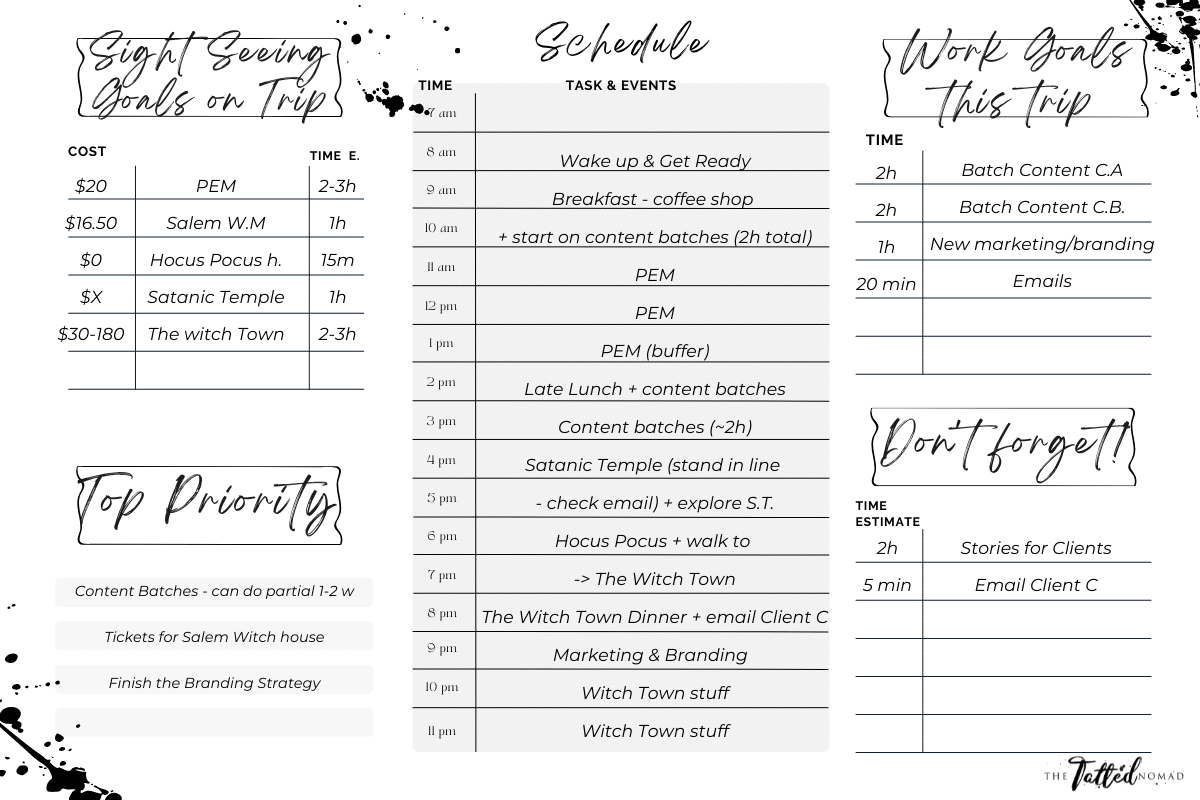 Sight Seeing
Goals on Trip
COST TIME E.
$20 PEM 2-3h
$16.50 Salem W.M 1h
$0 Hocus Pocus h. 15m
$X Satanic Temple 1h
$30-180 The witch Town 2-3h
Top Priority
Content Batches - can do partial 1-2 w
Tickets for Salem Witch house
Finish the Branding Strategy
Schedule
TIME TASK & EVENTS
7 am
8 am Wake up & Get Ready
9 am Breakfast - coffee shop
10 am + start on content batches (2h total)
11 am PEM
12 pm PEM
1 pm PEM (buffer)
2 pm Late Lunch + content batches
3 pm Content batches (~2h)
4 pm Satanic Temple (stand in line
5 pm - check email) + explore S.T.
6 pm Hocus Pocus + walk to
7 pm -> The Witch Town
8 pm The Witch Town Dinner + email Client C
9 pm Marketing & Branding
10 pm Witch Town stuff
11 pm Witch Town stuff
Work Goals
this trip
TIME
2h Batch Content C.A
2h Batch Content C.B.
1h New marketing/branding
20 min Emails
Don't forget!
TIME
ESTIMATE
2h Stories for Clients
5 min Email Client C
THE Tatted NOMAD